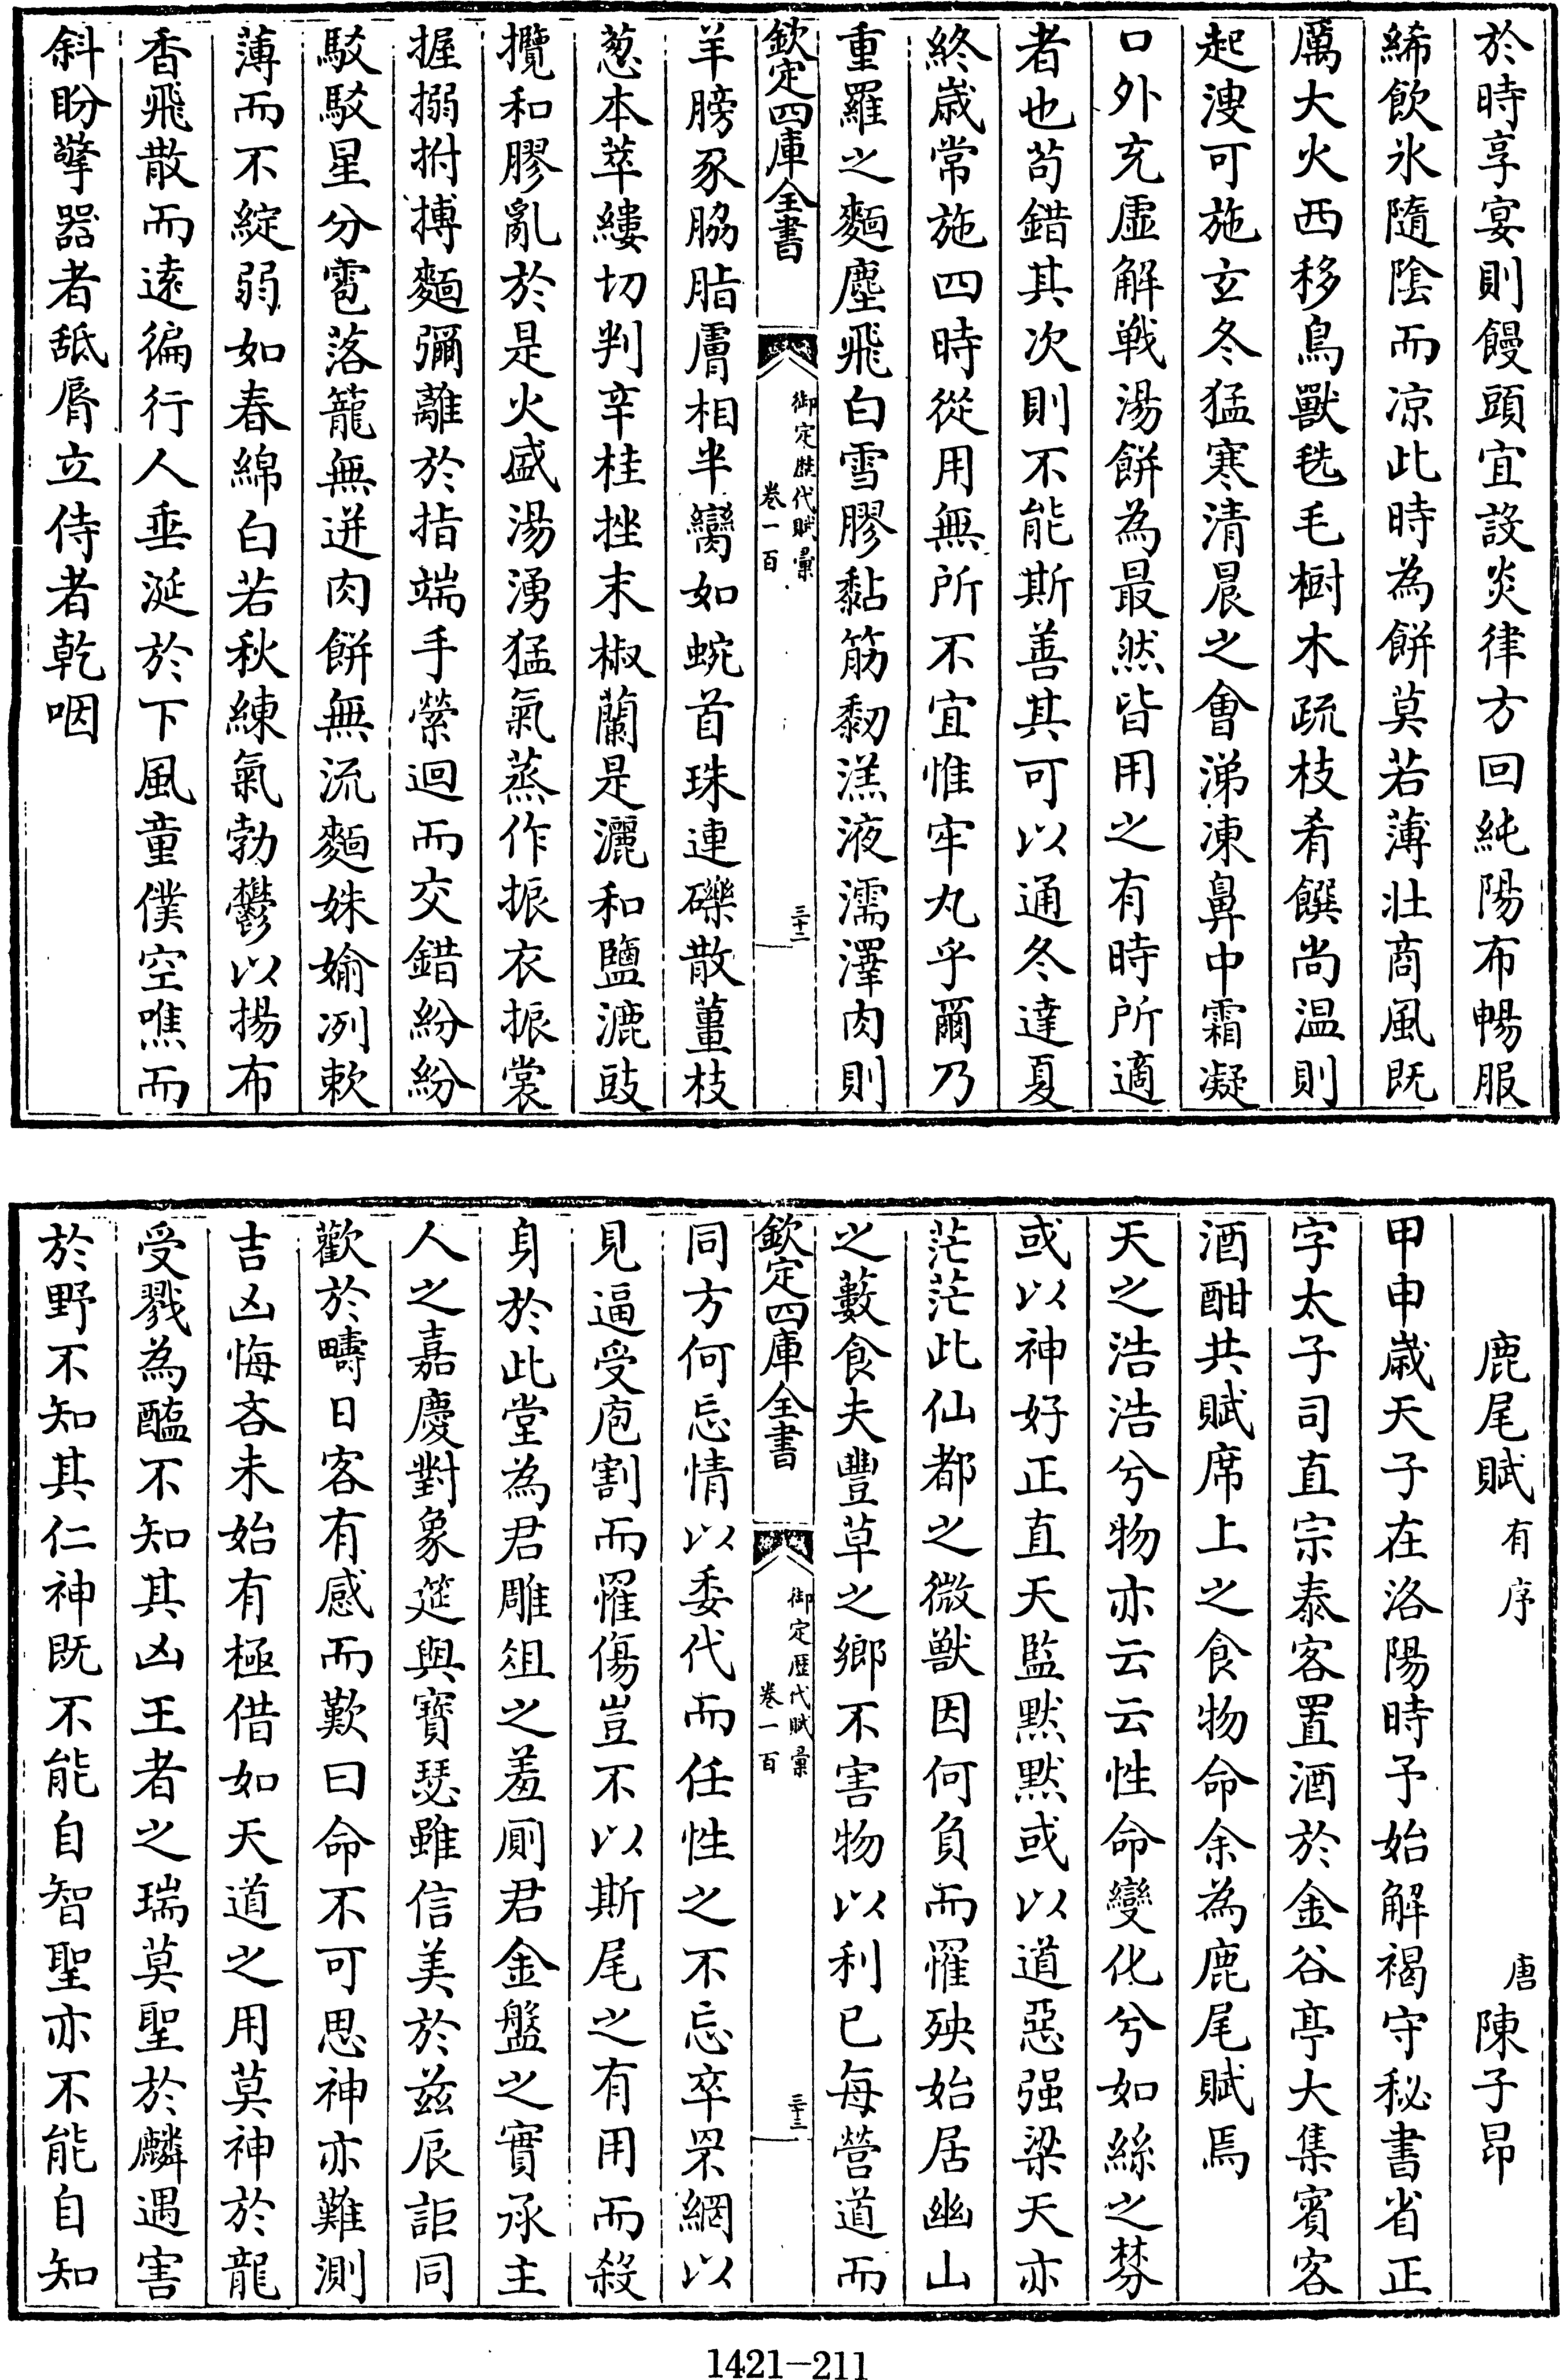 於時享宴則饅頭宜設炎律方回純陽布暢服
絺飲氷隨陰而凉此時為餅莫若薄壯商風既
厲大火西移鳥獸毨毛樹木疏枝肴饌尚温則
起溲可施玄冬猛寒清晨之會涕凍鼻中霜凝
口外充虛解戰湯餅為最然皆用之有時所適
者也苟錯其次則不能斯善其可以通冬達夏
終歲常施四時從用無所不宜惟牢丸乎爾乃
重羅之麵塵飛白雪膠黏筋䵑㵂液濡澤肉則
欽定四庫全書
御定歴代賦彙
卷一百
三十二
羊膀豕脇脂膚相半臠如蜿首珠連礫散薑枝
葱本萃縷切判辛桂挫末椒蘭是灑和鹽漉豉
攬和膠亂於是火盛湯湧猛氣蒸作振衣振裳
握搦拊搏麵彌離於指端手縈迴而交錯紛紛
駮駮星分雹落籠無迸肉餅無流麵姝媮冽敕
薄而不綻弱如春綿白若秋練氣勃鬱以揚布
香飛散而遠徧行人垂涎於下風童僕空噍而
斜盼擎器者舐脣立侍者乾咽
鹿尾賦有序 唐陳子昂
甲申歲天子在洛陽時予始解褐守秘書省正
字太子司直宗泰客置酒於金谷亭大集賓客
酒酣共賦席上之食物命余為鹿尾賦焉
天之浩浩兮物亦云云性命變化兮如絲之棼
或以神好正直天監黙黙或以道惡强梁天亦
茫茫此仙都之微獸因何負而罹殃始居幽山
之藪食夫豐草之鄉不害物以利已每營道而
欽定四庫全書
御定歴代賦彙
卷一百
三十三
同方何忘情以委代而任性之不忘卒罘網以
見逼受庖割而罹傷豈不以斯尾之有用而殺
身於此堂為君雕俎之羞厠君金盤之實承主
人之嘉慶對象筵與寳瑟雖信美於兹辰詎同
歡於疇日客有感而歎曰命不可思神亦難測
吉凶悔吝未始有極借如天道之用莫神於龍
受戮為醢不知其凶王者之瑞莫聖於麟遇害
於野不知其仁神既不能自智聖亦不能自知
1421-211